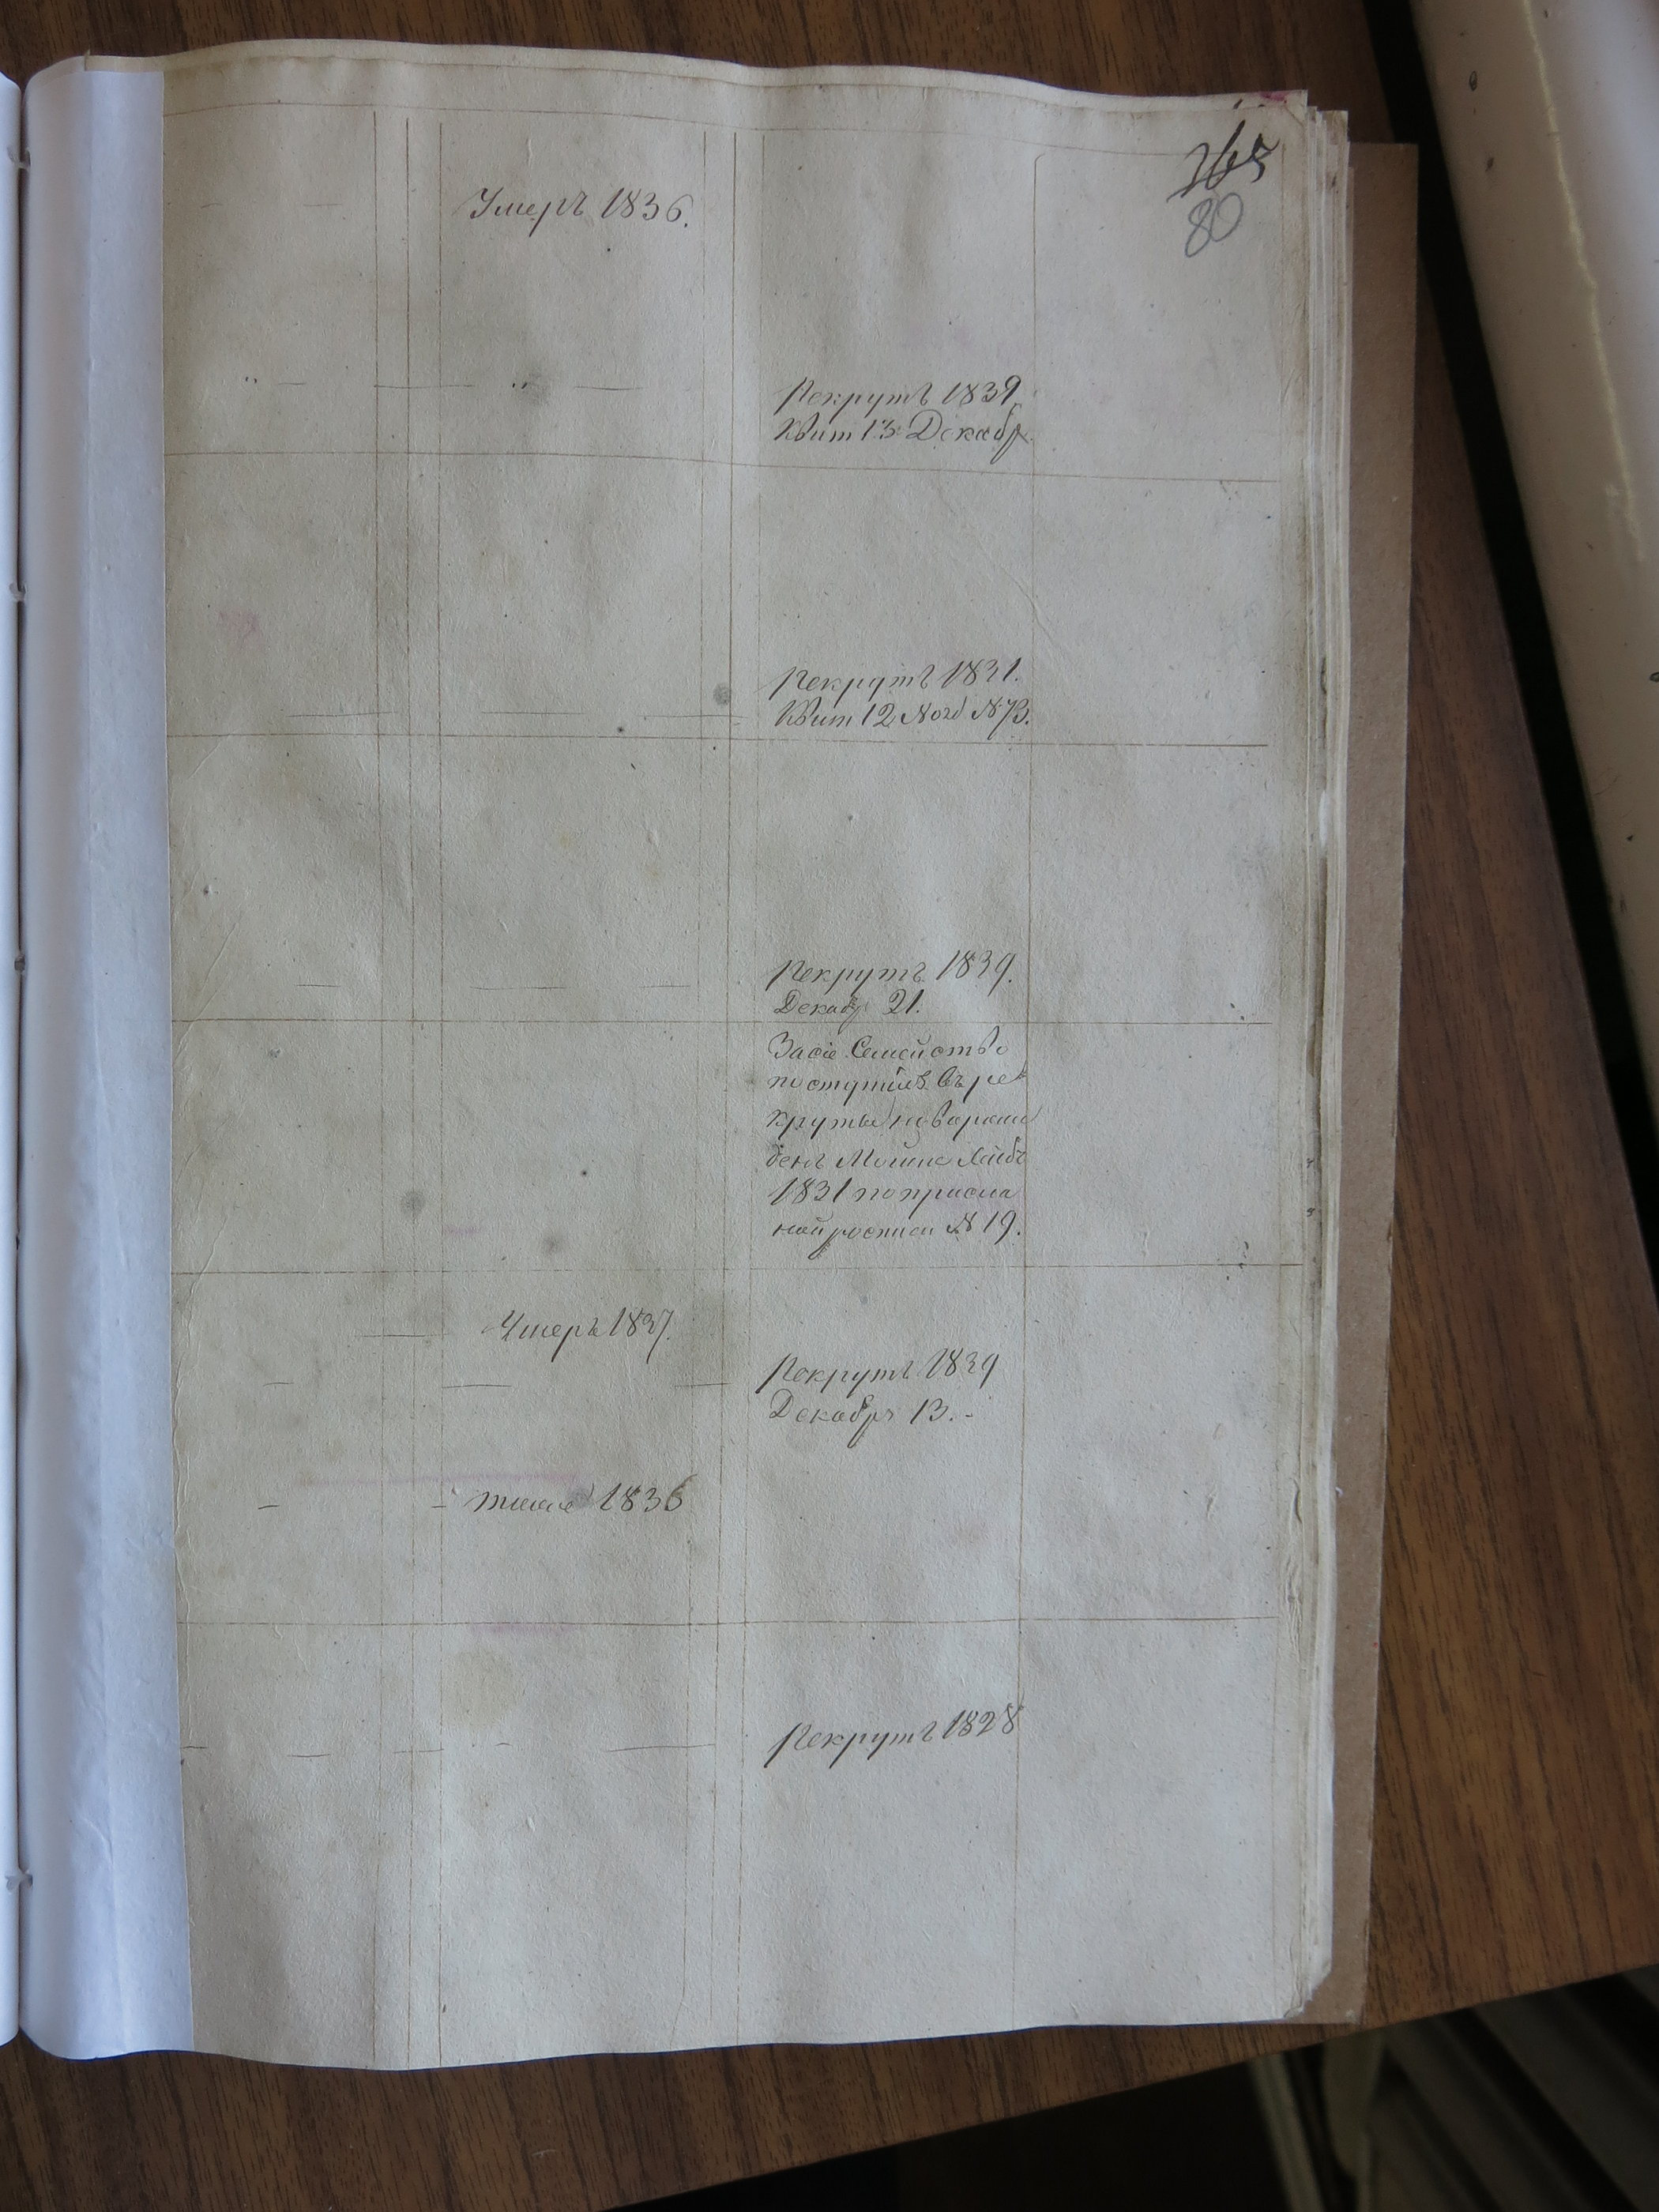 365
80
Умеръ 1836.
Рекрутъ 1839
Квит 13 Декабр
Рекрутъ 1831.
Квит 12 Nояб № 73.
Рекрутъ 1839.
Декабр 21.
За сіе Семейство
поступилъ въ ре
круты
Мошка Лейба
1831 по присла
ной росписи № 19.
Умеръ 1837.
Рекрутъ 1839
Декабръ 13.-
- - тоже 1836
Рекрутъ 1828